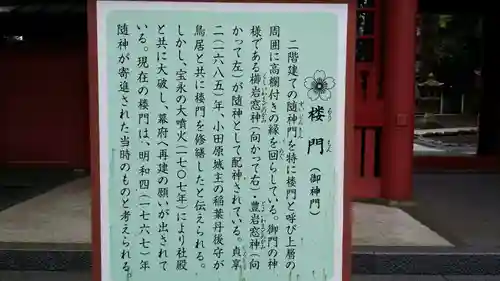 楼門（御神門）
ろう もん
二階建ての随神門を特に楼門と呼び上層の
周囲に高欄付きの縁を回らしている。御門の神
様である櫛岩窓神（向かって右）豊岩窓神（向
かって左）が随神として配神されている。貞享
二（一六八五）年、小田原城主の稲葉丹後守が
鳥居と共に楼門を修繕したと伝えられる。
しかし、宝永の大噴火（一七〇七年）により社殿
と共に大破し、幕府へ再建の願いが出されて
いる。現在の楼門は、明和四（一七六七）年
随神が寄進された当時のものと考えられる